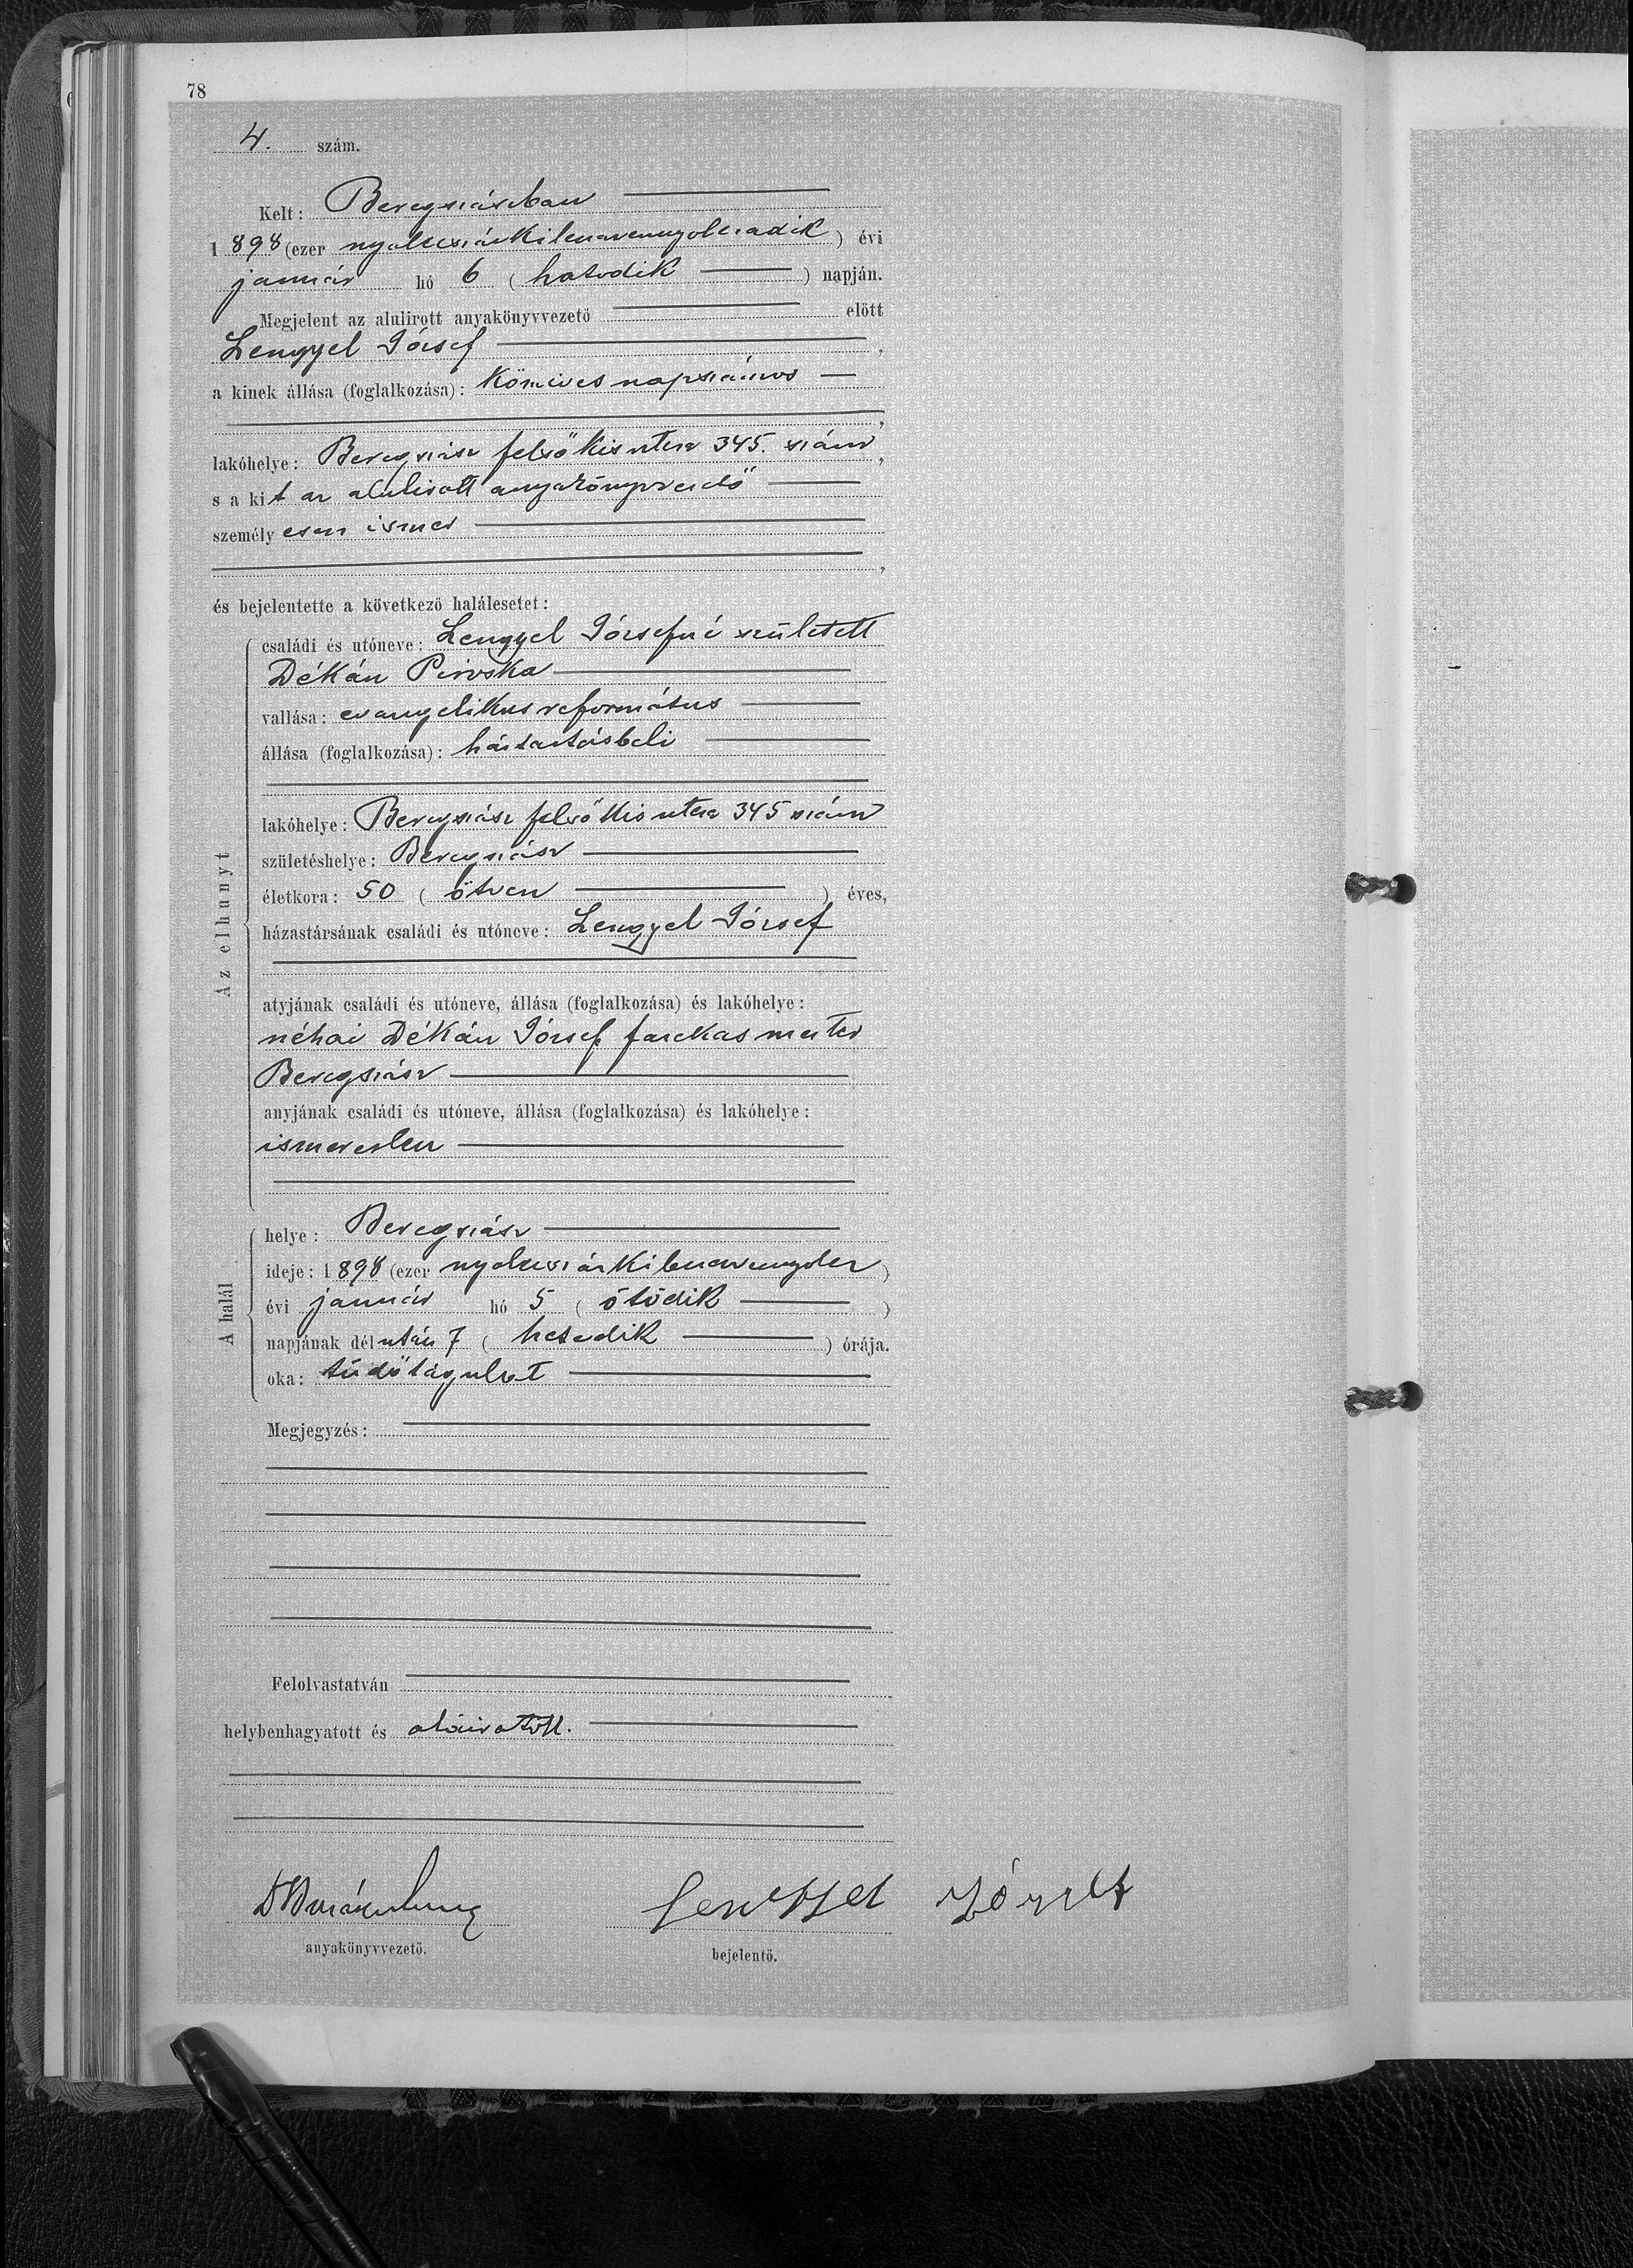 78
4. szám.
Kelt: Beregszászban
1898 (ezer nyolczszázkilenczvennyolczadik) évi
január hó 6 (hatodik) napján.
Megjelent az alulirott anyakönyvvezető előtt
Lengyel József,
a kinek állása (foglalkozása): kőmives napszámos
,
lakóhelye: Beregszász felsőkisutcza 345. szám,
s a kit az alulirott anyakönyvvezető
személyesen ismer
,
és bejelentette a következő halálesetet:
Az elhunyt
családi és utóneve: Lengyel Józsefné született
Dékán Piroska
vallása: evangelikus református
állása (foglalkozása): háztartásbeli
lakóhelye: Beregszász felsőkisutcza 345 szám
születéshelye: Beregszász
életkora: 50 (ötven) éves,
házastársának családi és utóneve: Lengyel József
atyjának családi és utóneve, állása (foglalkozása) és lakóhelye:
néhai Dékán József
Beregszász
anyjának családi és utóneve, állása (foglalkozása) és lakóhelye:
ismeretlen
A halál
helye: Beregszász
ideje: 1898 (ezer nyolczszázkilenczvennyolcz)
évi január hó 5 (ötödik)
napjának délután 7 (hetedik) órája.
oka: tüdőtágulat
Megjegyzés:
Felolvastatván
helybenhagyatott és aláiratott.
Lengyel József
anyakönyvvezető.
bejelentő.